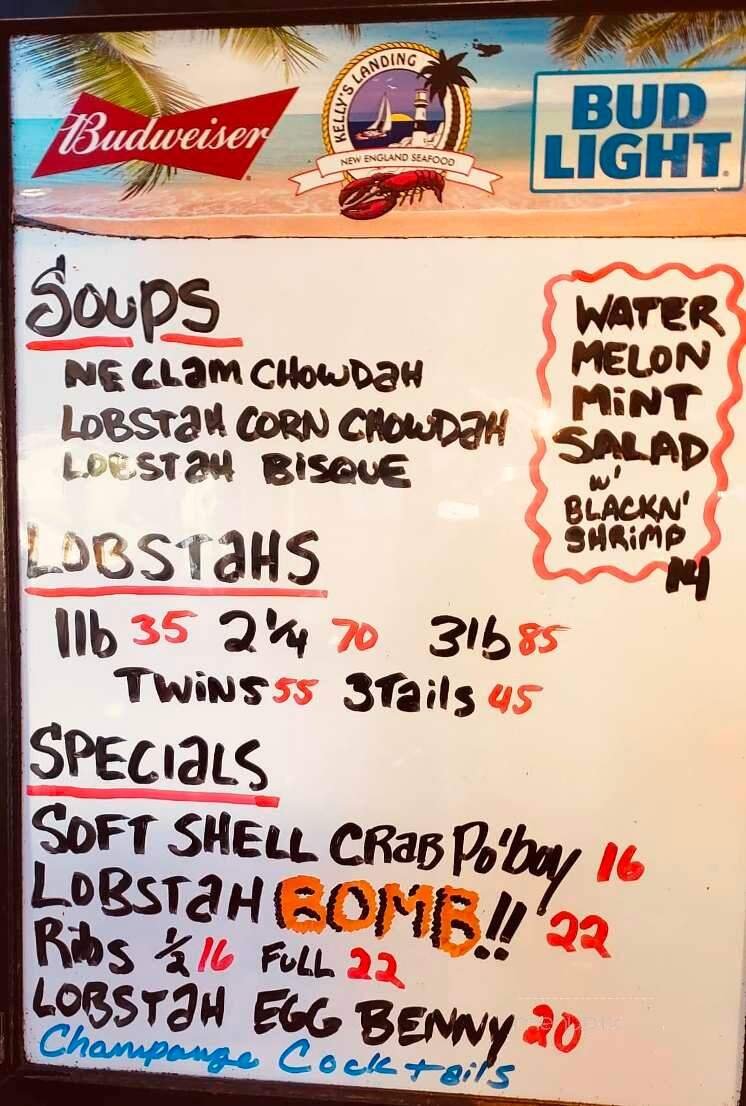 Budweiser
KELLY'S LANDING
NEW ENGLAND SEAFOOD
BUD
LIGHT
SOUPS
NE CLAM CHOWDAH
LOBSTAH CORN CHOWDAH
LOBSTAH BISQUE
WATER
MELON
MINT
SALAD
w'
BLACKN'
SHRIMP
14
LOBSTAHS
1lb 35 2 1/4 70 3lb 85
TWINS 55 3Tails 45
SPECIALS
SOFT SHELL CRAB Po'boy 16
LOBSTAH BOMB!! 22
Ribs 1/2 16 FULL 22
LOBSTAH EGG BENNY 20
Champange Cocktails